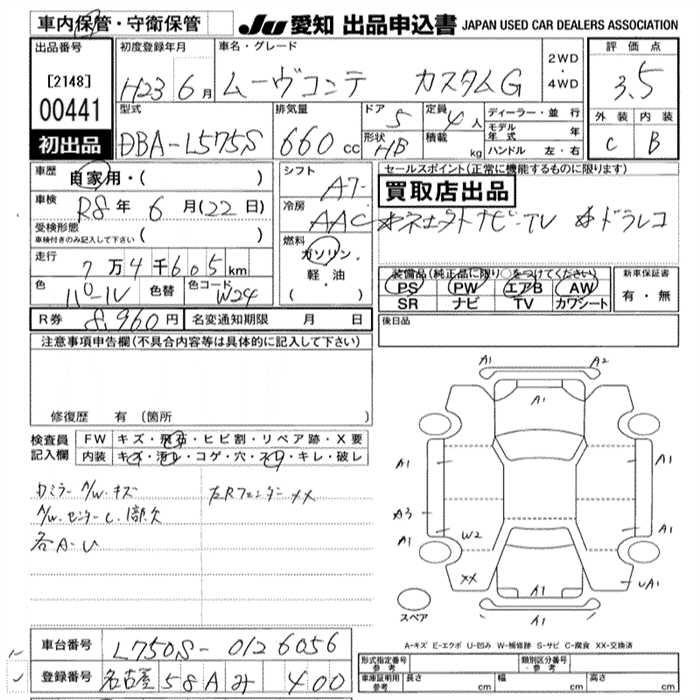 車内保管・守衛保管 JU愛知 出品申込書 JAPAN USED CAR DEALERS ASSOCIATION
出品番号 初度登録年月 車名・グレード 評価点
[2148] H23 6月 ムーヴコンテ カスタムG 2WD・4WD 3.5
00441 型式 排気量 ドア 5 定員 4人 ディーラー・並行 外装 内装
初出品 DBA-L575S 660cc 形状 HB 積載 kg モデル年式 年 C B
ハンドル 左・右
車歴 自家用・( ) シフト A7- セールスポイント(正常に機能するものに限ります)
車検 R8年 6月(22日) 冷房 AAC 買取店出品
受検形態 車検付きのみ記入して下さい ナビ・TV ドラレコ
走行 7万4千605km 燃料 ガソリン・軽油・( )
装備品(純正品に限り○をつけてください) 新車保証書
色 パール 色替 色コード W24 PS PW エアB AW 有・無
SR ナビ TV カワシート
R券 8,960円 名変通知期限 月 日 後日品
注意事項申告欄(不具合内容等は具体的に記入して下さい)
修復歴 有(箇所
検査員記入欄 FW キズ・飛石・ヒビ割・リペア跡・X要
内装 キズ・汚レ・コゲ・穴・スレ・キレ・破レ
カミラー A/W.キズ 左Rフェンダー XX
各A-U
A1 A2
A1
A1 A1
A3 A1
A1 W2
XX A1 UA1
スペア A1
A-キズ E-エクボ U-凹み W-補修跡 S-サビ C-腐食 XX-交換済
車台番号 L750S-0126056
登録番号 名古屋 58A み 400
形式指定番号 参考 類別区分番号 参考
車庫証明用 参考 長さ cm 幅 cm 高さ cm